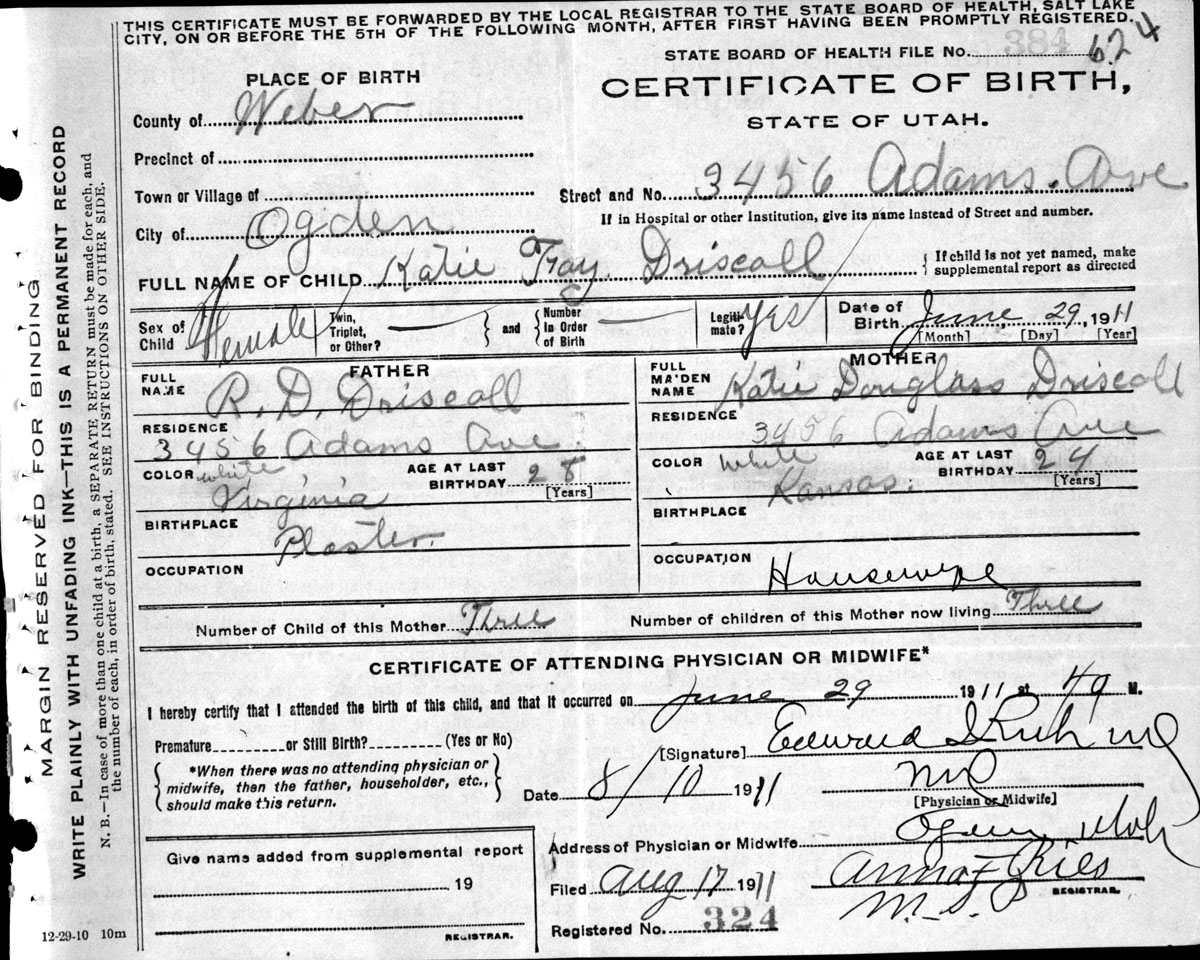 THIS CERTIFICATE MUST BE FORWARDED BY THE LOCAL REGISTRAR TO THE STATE BOARD OF HEALTH, SALT LAKE
CITY, ON OR BEFORE THE 5TH OF THE FOLLOWING MONTH, AFTER FIRST HAVING BEEN PROMPTLY REGISTERED.
STATE BOARD OF HEALTH FILE No. 384 624
PLACE OF BIRTH
CERTIFICATE OF BIRTH,
STATE OF UTAH.
County of Weber
Precinct of
Town or Village of
Street and No. 3456 Adams. Ave
If in Hospital or other Institution, give its name instead of Street and number.
City of Ogden
FULL NAME OF CHILD Katie Fay Driscoll
If child is not yet named, make
supplemental report as directed
Sex of Child Female
Twin, Triplet, or Other?
and
Number In Order of Birth
Legitimate? Yes
Date of Birth June, 29, 1911
[Month] [Day] [Year]
FATHER
FULL NAME R. D. Driscoll
RESIDENCE
3456 Adams Ave.
COLOR white
AGE AT LAST BIRTHDAY 28
[Years]
Virginia
BIRTHPLACE
Plaster.
OCCUPATION
MOTHER
FULL MAIDEN NAME Katie Douglass Driscoll
RESIDENCE
3456 Adams Ave
COLOR White
AGE AT LAST BIRTHDAY 24
[Years]
Kansas.
BIRTHPLACE
OCCUPATION
Housewife
Number of Child of this Mother Three
Number of children of this Mother now living Three
CERTIFICATE OF ATTENDING PHYSICIAN OR MIDWIFE*
I hereby certify that I attended the birth of this child, and that it occurred on June 29 1911 at 4 M.
Premature or Still Birth? (Yes or No)
[Signature] Edward I Rich md
*When there was no attending physician or
midwife, then the father, householder, etc.,
should make this return.
Date 8/10 1911
md
[Physician or Midwife]
Address of Physician or Midwife Ogden Utah
Give name added from supplemental report
19
REGISTRAR.
Filed Aug 17 1911
Anna F Ries
REGISTRAR.
Registered No. 324
12-29-10 10m
MARGIN RESERVED FOR BINDING
WRITE PLAINLY WITH UNFADING INK—THIS IS A PERMANENT RECORD
N. B.—In case of more than one child at a birth, a SEPARATE RETURN must be made for each, and
the number of each, in order of birth, stated. SEE INSTRUCTIONS ON OTHER SIDE.